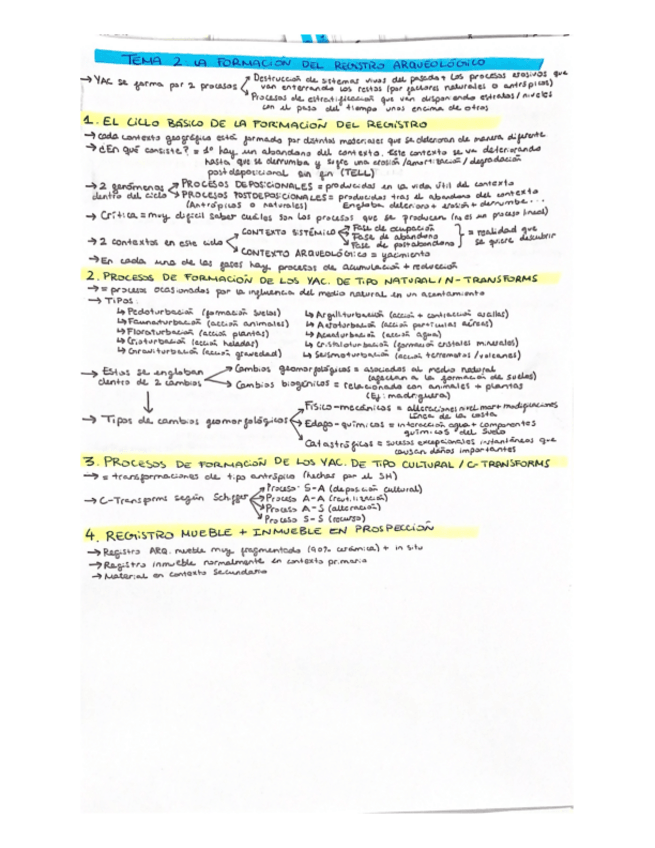 TEMA 2 LA FORMACIÓN DEL REGISTRO ARQUEOLÓGICO
→ YAC se forma por 2 procesos
Destrucción de sistemas vivos del pasado + los procesos erosivos que
van enterrando los restos (por factores naturales o antrópicos)
Procesos de estratificación que van disponiendo estratos/niveles
con el paso del tiempo unos encima de otros
1. EL CICLO BÁSICO DE LA FORMACIÓN DEL REGISTRO
→ cada contexto geográfico está formado por distintos materiales que se deterioran de manera diferente
→ ¿En qué consiste? = 1º hay un abandono del contexto. Este contexto se va deteriorando
hasta que se derrumba y sufre una erosión/amortización/degradación
postdeposicional sin fin (TELL)
→ 2 fenómenos dentro del ciclo
PROCESOS DEPOSICIONALES = producidas en la vida útil del contexto
PROCESOS POSTDEPOSICIONALES = producidas tras el abandono del contexto
(Antrópicos o naturales) Engloba deterioro + erosión + derrumbe...
→ Crítica = muy difícil saber cuáles son los procesos que se producen (no es un proceso lineal)
→ 2 contextos en este ciclo
CONTEXTO SISTÉMICO
Fase de ocupación
Fase de abandono
Fase de postabandono
= realidad que se quiere descubrir
CONTEXTO ARQUEOLÓGICO = yacimiento
→ En cada una de las fases hay procesos de acumulación + reducción
2. PROCESOS DE FORMACIÓN DE LOS YAC. DE TIPO NATURAL/N-TRANSFORMS
→ = procesos ocasionados por la influencia del medio natural en un asentamiento
→ Tipos:
↳ Pedoturbación (formación suelos)
↳ Faunaturbación (acción animales)
↳ Floraturbación (acción plantas)
↳ Crioturbación (acción heladas)
↳ Graviturbación (acción gravedad)
↳ Argilliturbación (acción + contracción arcillas)
↳ Aeroturbación (acción partículas aéreas)
↳ Acuaturbación (acción agua)
↳ Cristaloturbación (formación cristales minerales)
↳ Seismoturbación (acción terremotos/volcanes)
→ Estas se engloban dentro de 2 cambios
Cambios geomorfológicos = asociados al medio natural
(afectan a la formación de suelos)
Cambios biogénicos = relacionada con animales + plantas
(Ej: madriguera)
→ Tipos de cambios geomorfológicos
Físico-mecánicos = alteraciones nivel mar + modificaciones
línea de la costa
Edafo-químicos = interacción agua + componentes
químicos del suelo
Catastróficos = sucesos excepcionales instantáneos que
causan daños importantes
3. PROCESOS DE FORMACIÓN DE LOS YAC. DE TIPO CULTURAL / C-TRANSFORMS
→ = transformaciones de tipo antrópico (hechas por el SH)
→ C-Transforms según Schiffer
Proceso S-A (deposición cultural)
Proceso A-A (reutilización)
Proceso A-S (alteración)
Proceso S-S (recurso)
4. REGISTRO MUEBLE + INMUEBLE EN PROSPECCIÓN
→ Registro ARQ. mueble muy fragmentado (90% cerámica) + in situ
→ Registro inmueble normalmente en contexto primario
→ Material en contexto secundario